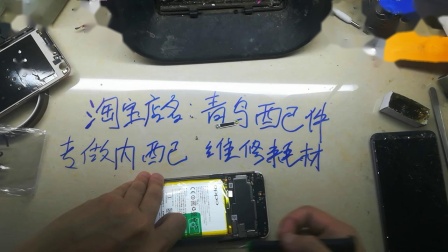 淘宝店名:青鸟配件
专做内配 维修耗材
oppo